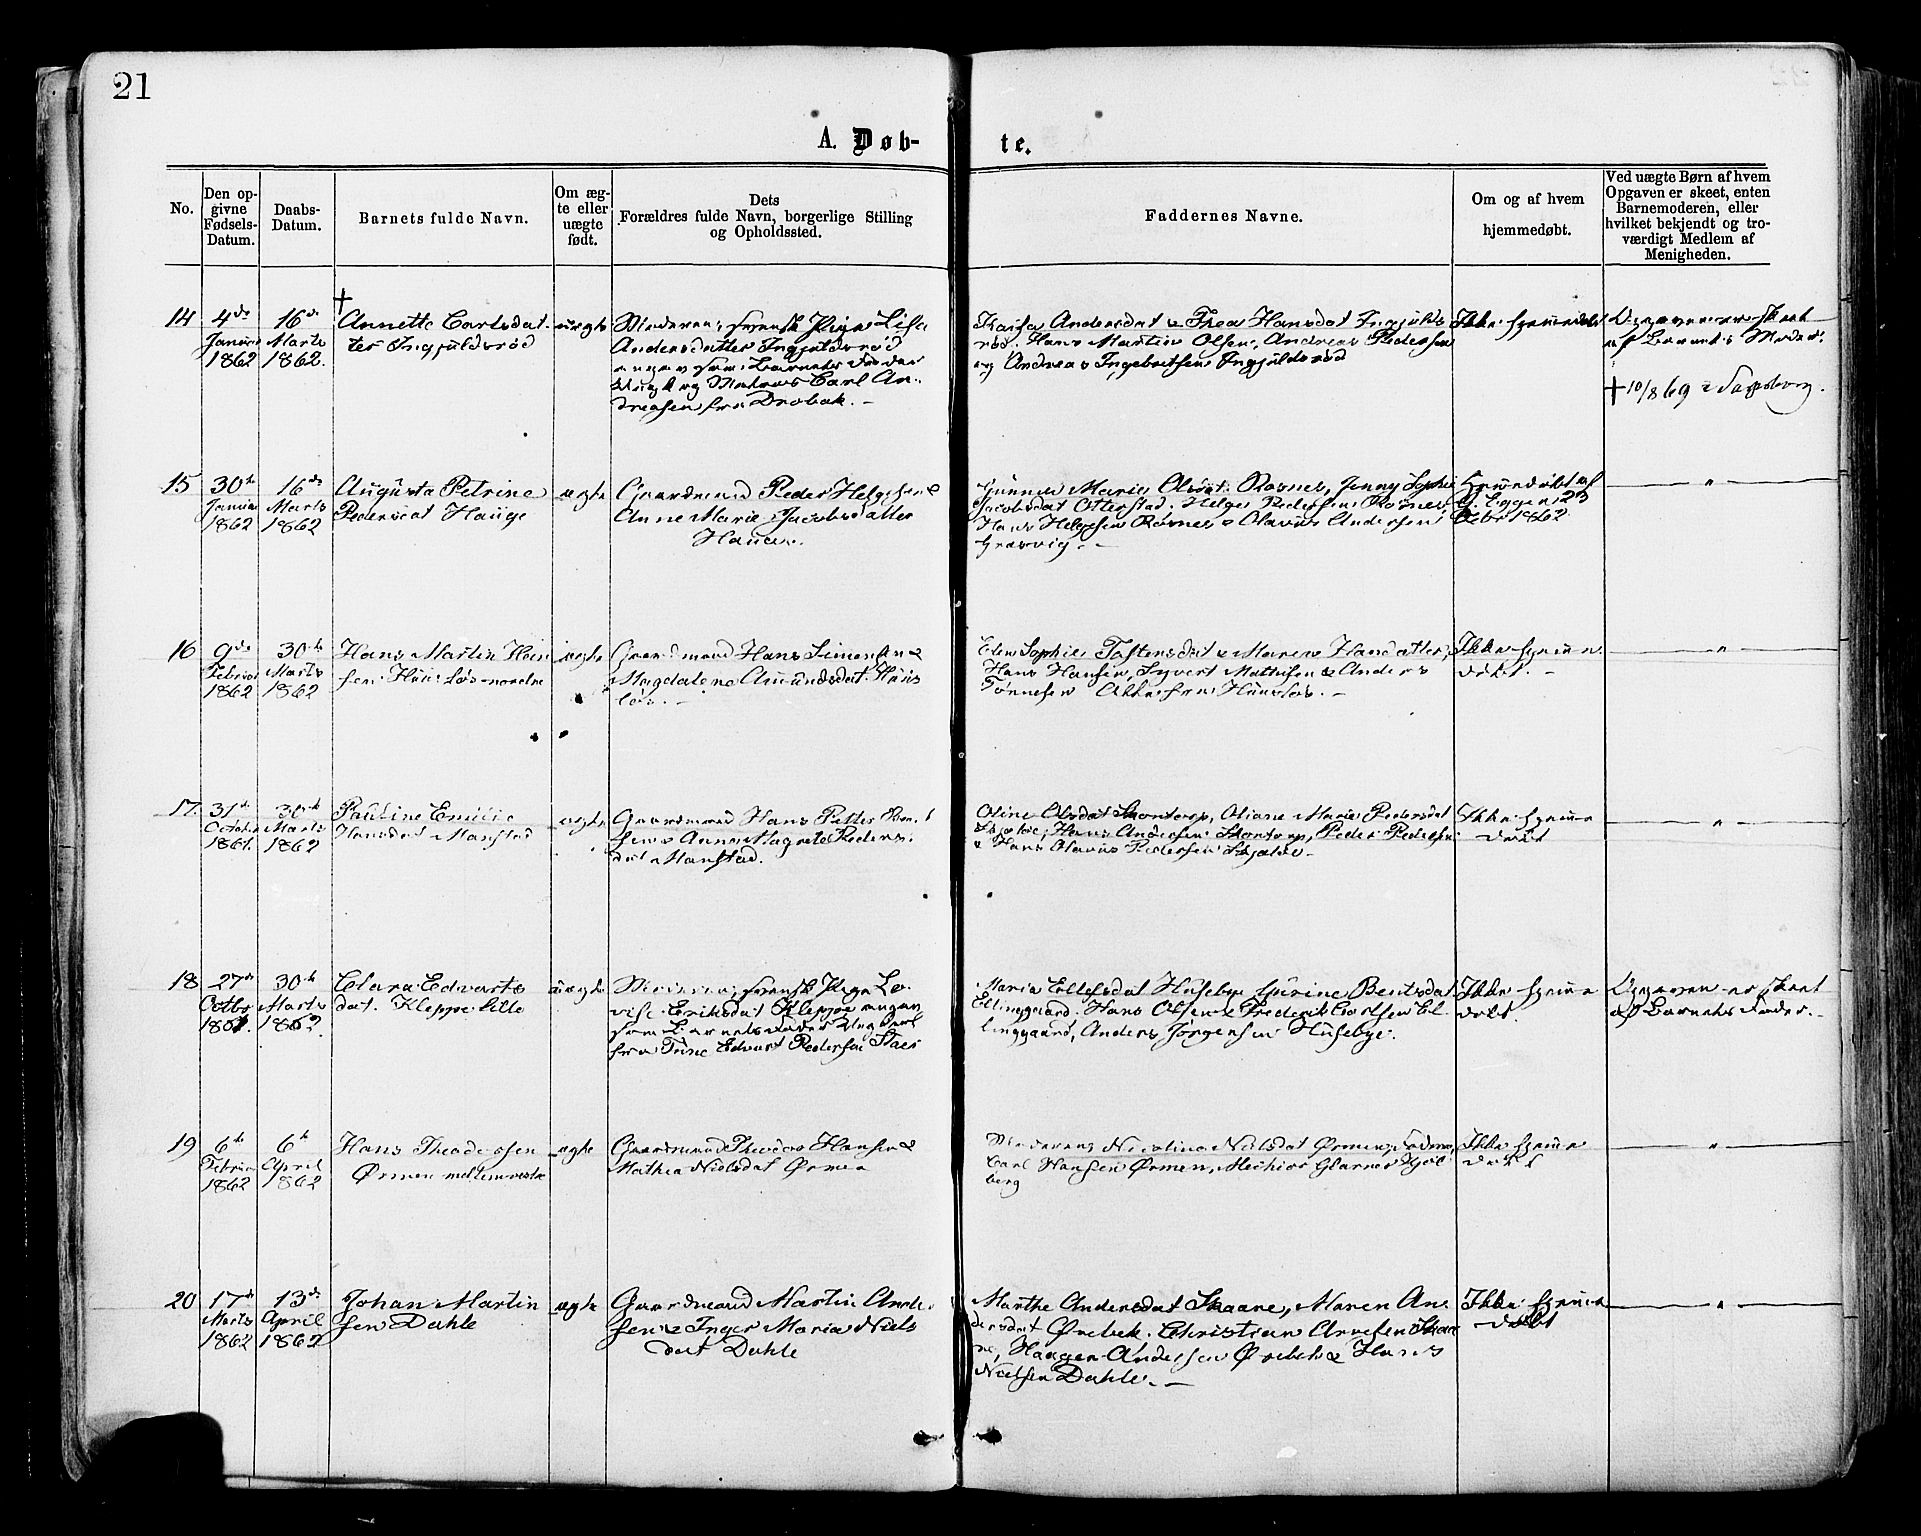 21
A. Døb-
te.
No.
Den op-
givne
Fødsels-
Datum.
Daabs-
Datum.
Barnets fulde Navn.
Om æg-
te eller
uægte
født.
Dets
Forældres fulde Navn, borgerlige Stilling
og Opholdssted.
Faddernes Navne.
Om og af hvem
hjemmedøbt.
Ved uægte Børn af hvem
Opgaven er skeet, enten
Barnemoderen, eller
hvilket bekjendt og tro-
værdigt Medlem af
Menigheden.
14
4de
Januar
1862
16de
Marts
1862.
†
Annette Carlsdat
ter Ingjuldsrød
uægte
Moderen: svensk Pige Lisa
Andersdatter Ingjuldsrød
angav som Barnets Fader
Ungk og Matros Carl An-
dreasen fra Drøbak. –
Kaisa Andersdat & Thea Hansdat Ingjulds
rød. Hans Martin Olsen, Andreas Pedersen
og Andreas Ingebretsen Ingjuldsrød
Ikke hjemmedøbt
Opgaven er skeet
af Barnets Moder.
† 10/8 69 i Sarpsborg.
15
30te
Januar
1862
16de
Marts
1862
Augusta Petrine
Pedersdat Hauge
ægte
Gaardmand Peder Helgesen &
Anne Marie Jacobsdatter
Hauge.
Gunner Marie Olsdat. Rosnes, Jenny Sophie
Jacobsdat Otterstad. Helge Pedersen Rosnes,
Hans Helgesen Rosnes & Olavus Andersen
Græsvig. –
Hjemmedøbt af
Eggen 23
Febr 1862
"
16
9de
Februar
1862
30te
Marts
1862
Hans Martin Han
sen Huusløs nordre
ægte
Gaardmand Hans Simensen &
Magdalene Amundsdat. Huus
løs. –
Elen Sophie Tostensdat & Maren Hansdatter,
Hans Hansen, Syvert Mathisen & Anders
Tønnesen Alle fra Huusløs. –
Ikke hjemme
døbt. –
"
17
31te
October
1861.
30te
Marts
1862
Pauline Emilie
Hansdat Manstad
ægte
Gaardmand Hans Petter Han
sen & Anne Magrete Peders
dat Manstad.
Oline Olsdat Skontorp, Oliane Marie Pedersdat
Skjælin, Hans Andersen Skontorp, Peder Pedersen
& Hans Olavus Pedersen Skjælin –
Ikke hjemme
døbt
"
18
27de
Octbr
1861.
30te
Marts
1862
Clara Edvarts
dat. Kleppe lille
uægte
Moderen: svensk Pige Lo
vise Eriksdat Kleppe angav
som Barnets Fader Ungkarl
fra Tune Edvart Pedersen
Maria Ellefsdat Huseby, Gurine Bentsdat
Elinggaard. Hans Olsen & Frederik Carlsen El
linggaard, Anders Jørgensen Husebye.
Ikke hjemme
døbt.
Opgaven er skeet
af Barnets Fader. –
19
6te
Februar
1862
6te
April
1862
Hans Theodorsen
Ørmen mellem vestre
ægte
Gaardmand Theodor Hansen &
Mathea Nielsdat Ørmen
Moderen, Nicolina Nielsdat Ørmen, Faderen,
Carl Hansen Ørmen, Mechior Glarner Kjøl
berg
Ikke hjemme
døbt
"
20
17de
Marts
1862
13de
April
1862
Johan Martin
sen Dahle
ægte
Gaardmand Martin Ander
sen & Inger Maria Niels
dat Dahle
Marthe Andersdat Skaare, Maren An
dersdat Ørebek. Christian Arnesen Skaa
re, Haagen Andersen Ørebek & Hans
Nielsen Dahle. –
Ikke hjemme
døbt
"